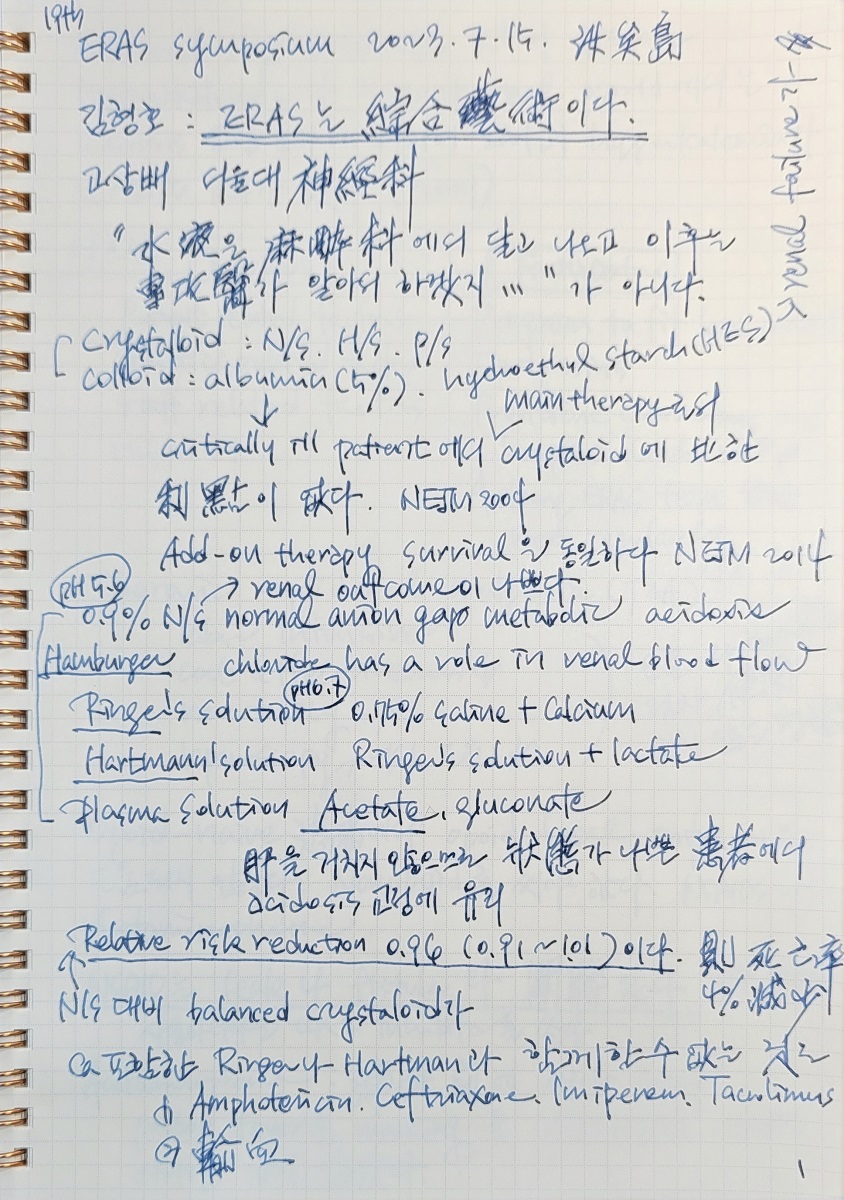 19th
ERAS symposium 2023.7.15. 洪矣島
김형호 : ERAS는 綜合藝術이다.
고상배 서울대 神經科
"水液을 麻醉科에서 달고 나오고 이후는
專攻醫가 알아서 하겠지 ..." 가 아니다.
Crystalloid : N/S. H/S. P/S
Colloid : albumin (5%). hydroethyl starch (HES) → renal failure
main therapy로서
critically ill patient에서 crystaloid에 비한
利點이 없다. NEJM 2004
Add-on therapy survival은 동일하다 NEJM 2014
→ renal outcome이 나쁘다.
pH 5.6
0.9% N/S normal anion gap metabolic acidosis
Hamburger chloride has a role in renal blood flow
pH 6.7
Ringer's solution 0.75% saline + Calcium
Hartmann' solution Ringer's solution + lactate
Plasma solution Acetate, gluconate
肝을 거치지 않으므로 狀態가 나쁜 患者에서
acidosis 교정에 유리
Relative risk reduction 0.96 (0.91~1.01)이다. 則 死亡率
4% 減少
N/S 대비 balanced crystaloid가
Ca 포함한 Ringer나 Hartman과 함께할 수 없는 것들
① Amphotericin. Ceftriaxone. Imipenem. Tacrolimus
② 輸血
1